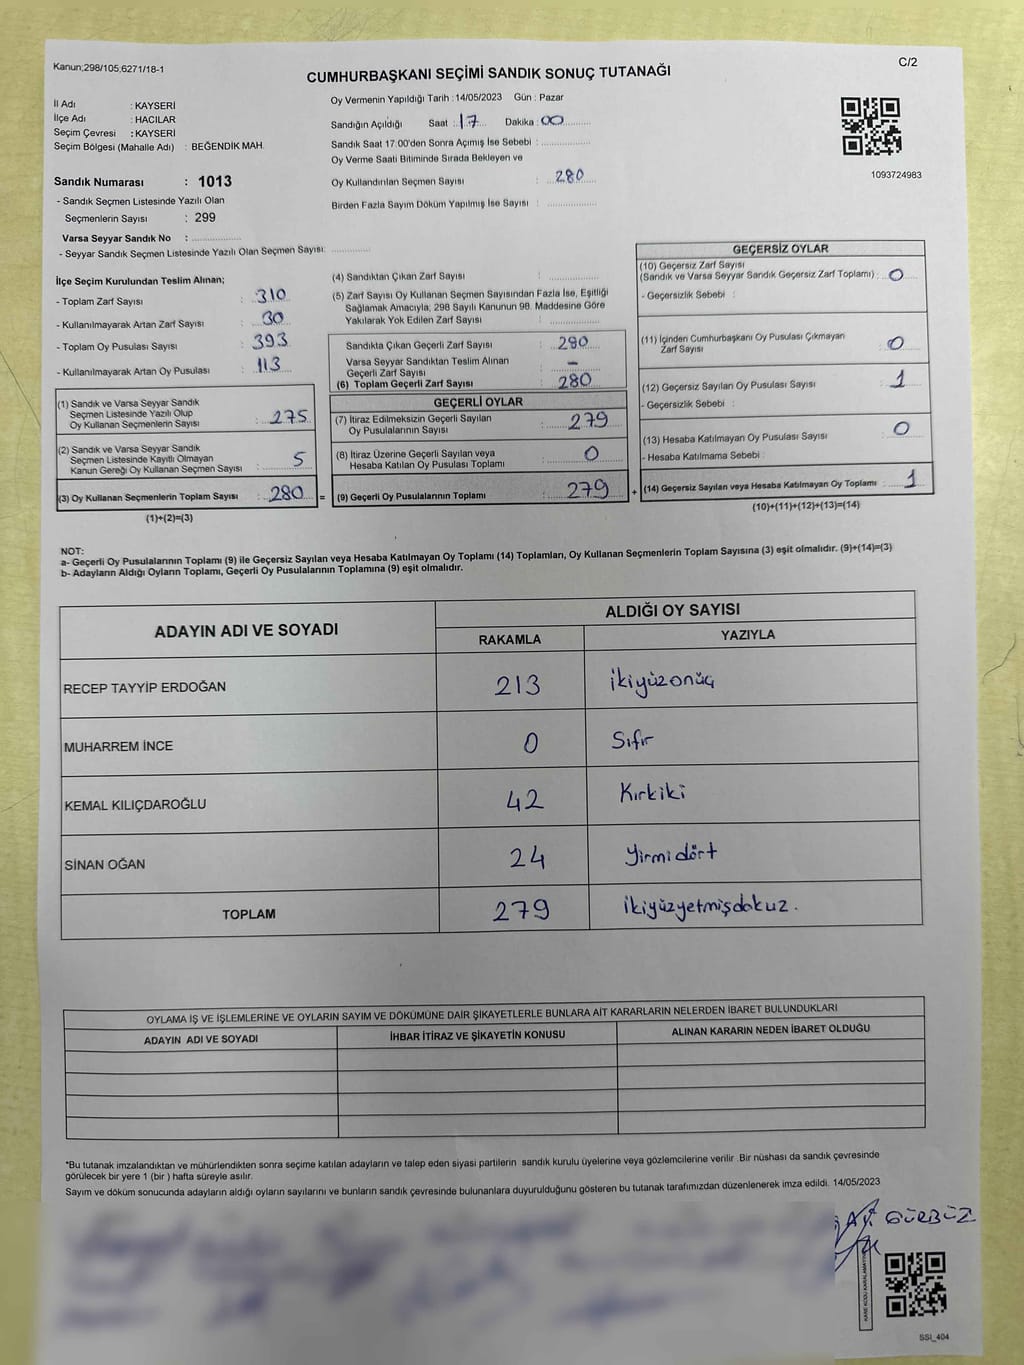 Kanun;298/105,6271/18-1
C/2
CUMHURBAŞKANI SEÇİMİ SANDIK SONUÇ TUTANAĞI
İl Adı : KAYSERİ
İlçe Adı : HACILAR
Seçim Çevresi : KAYSERİ
Seçim Bölgesi (Mahalle Adı) : BEĞENDİK MAH.
Sandık Numarası : 1013
- Sandık Seçmen Listesinde Yazılı Olan
Seçmenlerin Sayısı : 299
Varsa Seyyar Sandık No :
- Seyyar Sandık Seçmen Listesinde Yazılı Olan Seçmen Sayısı:
Oy Vermenin Yapıldığı Tarih : 14/05/2023 Gün : Pazar
Sandığın Açıldığı Saat : 17 Dakika : 00
Sandık Saat 17:00'den Sonra Açımış İse Sebebi :
Oy Verme Saati Bitiminde Sırada Bekleyen ve
Oy Kullandırılan Seçmen Sayısı : 280
Birden Fazla Sayım Döküm Yapılmış İse Sayısı :
1093724983
İlçe Seçim Kurulundan Teslim Alınan;
- Toplam Zarf Sayısı : 310
- Kullanılmayarak Artan Zarf Sayısı : 30
- Toplam Oy Pusulası Sayısı : 393
- Kullanılmayarak Artan Oy Pusulası : 113
(1) Sandık ve Varsa Seyyar Sandık
Seçmen Listesinde Yazılı Olup
Oy Kullanan Seçmenlerin Sayısı : 275
(2) Sandık ve Varsa Seyyar Sandık
Seçmen Listesinde Kayıtlı Olmayan
Kanun Gereği Oy Kullanan Seçmen Sayısı : 5
(3) Oy Kullanan Seçmenlerin Toplam Sayısı : 280 =
(1)+(2)=(3)
(4) Sandıktan Çıkan Zarf Sayısı :
(5) Zarf Sayısı Oy Kullanan Seçmen Sayısından Fazla İse, Eşitliği
Sağlamak Amacıyla; 298 Sayılı Kanunun 98. Maddesine Göre
Yakılarak Yok Edilen Zarf Sayısı :
Sandıkta Çıkan Geçerli Zarf Sayısı : 280
Varsa Seyyar Sandıktan Teslim Alınan
Geçerli Zarf Sayısı : –
(6) Toplam Geçerli Zarf Sayısı : 280
GEÇERLİ OYLAR
(7) İtiraz Edilmeksizin Geçerli Sayılan
Oy Pusulalarının Sayısı : 279
(8) İtiraz Üzerine Geçerli Sayılan veya
Hesaba Katılan Oy Pusulası Toplamı : 0
(9) Geçerli Oy Pusulalarının Toplamı : 279 +
GEÇERSİZ OYLAR
(10) Geçersiz Zarf Sayısı
(Sandık ve Varsa Seyyar Sandık Geçersiz Zarf Toplamı) : 0
- Geçersizlik Sebebi :
(11) İçinden Cumhurbaşkanı Oy Pusulası Çıkmayan
Zarf Sayısı : 0
(12) Geçersiz Sayılan Oy Pusulası Sayısı : 1
- Geçersizlik Sebebi :
(13) Hesaba Katılmayan Oy Pusulası Sayısı : 0
- Hesaba Katılmama Sebebi :
(14) Geçersiz Sayılan veya Hesaba Katılmayan Oy Toplamı : 1
(10)+(11)+(12)+(13)=(14)
NOT:
a- Geçerli Oy Pusulalarının Toplamı (9) ile Geçersiz Sayılan veya Hesaba Katılmayan Oy Toplamı (14) Toplamları, Oy Kullanan Seçmenlerin Toplam Sayısına (3) eşit olmalıdır. (9)+(14)=(3)
b- Adayların Aldığı Oyların Toplamı, Geçerli Oy Pusulalarının Toplamına (9) eşit olmalıdır.
ADAYIN ADI VE SOYADI
ALDIĞI OY SAYISI
RAKAMLA YAZIYLA
RECEP TAYYİP ERDOĞAN 213 ikiyüzonüç
MUHARREM İNCE 0 Sıfır
KEMAL KILIÇDAROĞLU 42 Kırkiki
SİNAN OĞAN 24 Yirmidört
TOPLAM 279 ikiyüzyetmişdokuz.
OYLAMA İŞ VE İŞLEMLERİNE VE OYLARIN SAYIM VE DÖKÜMÜNE DAİR ŞİKAYETLERLE BUNLARA AİT KARARLARIN NELERDEN İBARET BULUNDUKLARI
ADAYIN ADI VE SOYADI İHBAR İTİRAZ VE ŞİKAYETİN KONUSU ALINAN KARARIN NEDEN İBARET OLDUĞU
*Bu tutanak imzalandıktan ve mühürlendikten sonra seçime katılan adayların ve talep eden siyasi partilerin sandık kurulu üyelerine veya gözlemcilerine verilir .Bir nüshası da sandık çevresinde
görülecek bir yere 1 (bir ) hafta süreyle asılır.
Sayım ve döküm sonucunda adayların aldığı oyların sayılarını ve bunların sandık çevresinde bulunanlara duyurulduğunu gösteren bu tutanak tarafımızdan düzenlenerek imza edildi. 14/05/2023
GÜRBÜZ
SSI_404